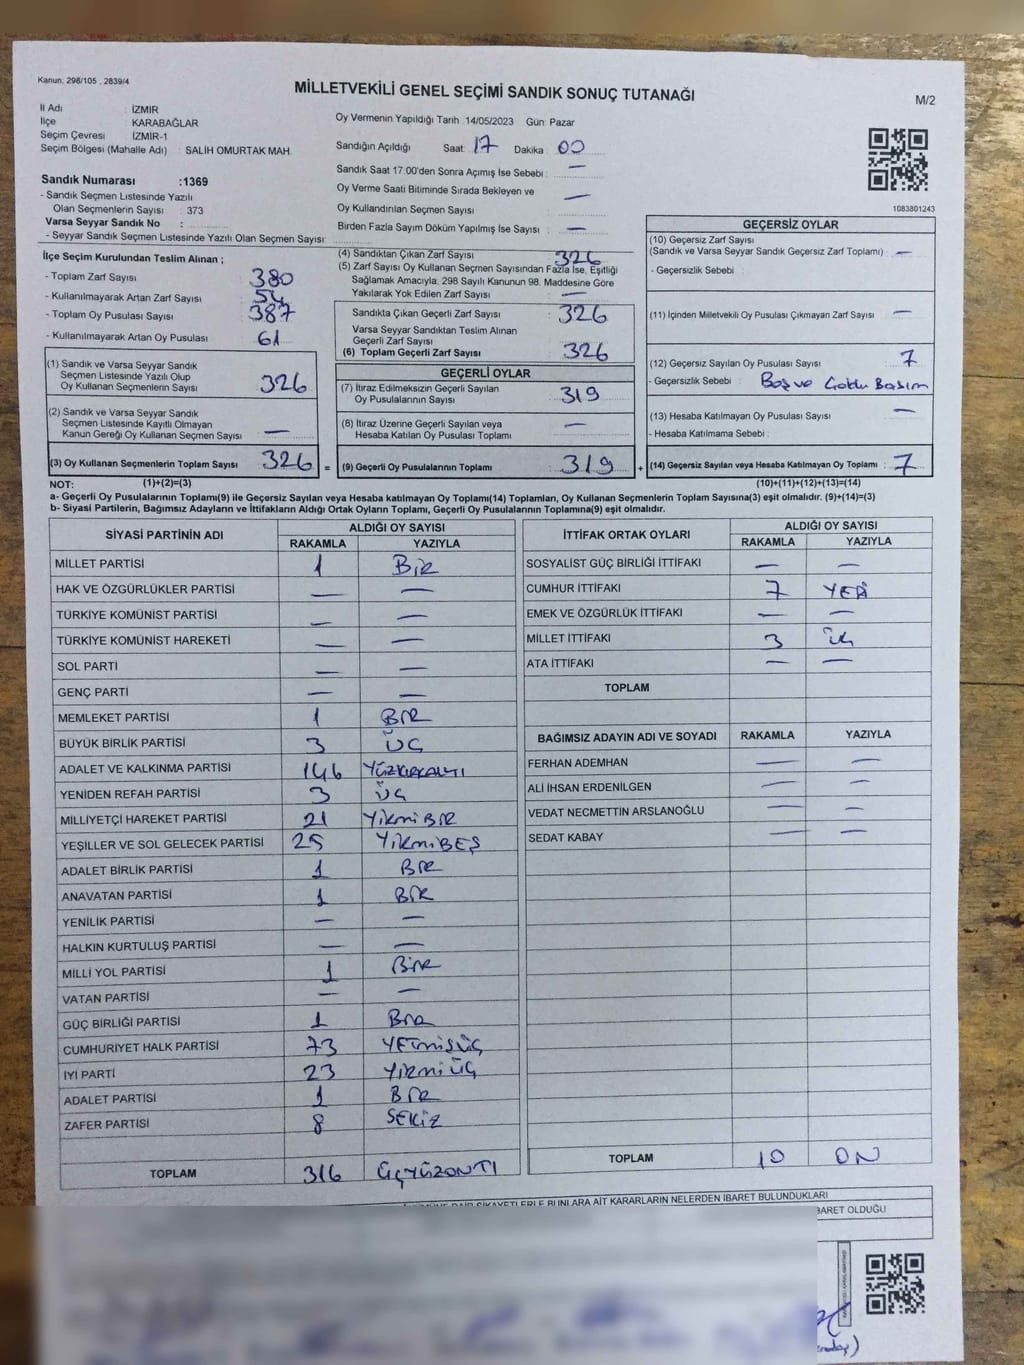 Kanun. 298/105 , 2839/4
MİLLETVEKİLİ GENEL SEÇİMİ SANDIK SONUÇ TUTANAĞI
M/2
İl Adı : İZMİR
İlçe KARABAĞLAR
Seçim Çevresi İZMİR-1
Seçim Bölgesi (Mahalle Adı) : SALİH OMURTAK MAH.
Sandık Numarası :1369
- Sandık Seçmen Listesinde Yazılı
Olan Seçmenlerin Sayısı : 373
Varsa Seyyar Sandık No :
- Seyyar Sandık Seçmen Listesinde Yazılı Olan Seçmen Sayısı:
Oy Vermenin Yapıldığı Tarih 14/05/2023 Gün: Pazar
Sandığın Açıldığı Saat: 17 Dakika 00
Sandık Saat 17:00'den Sonra Açımış İse Sebebi : —
Oy Verme Saati Bitiminde Sırada Bekleyen ve
Oy Kullandırılan Seçmen Sayısı —
Birden Fazla Sayım Döküm Yapılmış İse Sayısı : —
1083801243
İlçe Seçim Kurulundan Teslim Alınan ;
- Toplam Zarf Sayısı : 380
- Kullanılmayarak Artan Zarf Sayısı : 54
- Toplam Oy Pusulası Sayısı : 387
- Kullanılmayarak Artan Oy Pusulası : 61
(1) Sandık ve Varsa Seyyar Sandık
Seçmen Listesinde Yazılı Olup
Oy Kullanan Seçmenlerin Sayısı : 326
(2) Sandık ve Varsa Seyyar Sandık
Seçmen Listesinde Kayıtlı Olmayan
Kanun Gereği Oy Kullanan Seçmen Sayısı : —
(3) Oy Kullanan Seçmenlerin Toplam Sayısı : 326 =
(4) Sandıktan Çıkan Zarf Sayısı : 326
(5) Zarf Sayısı Oy Kullanan Seçmen Sayısından Fazla İse, Eşitliği
Sağlamak Amacıyla, 298 Sayılı Kanunun 98. Maddesine Göre
Yakılarak Yok Edilen Zarf Sayısı : —
Sandıkta Çıkan Geçerli Zarf Sayısı : 326
Varsa Seyyar Sandıktan Teslim Alınan
Geçerli Zarf Sayısı :
(6) Toplam Geçerli Zarf Sayısı : 326
GEÇERLİ OYLAR
(7) İtiraz Edilmeksizin Geçerli Sayılan
Oy Pusulalarının Sayısı : 319
(8) İtiraz Üzerine Geçerli Sayılan veya
Hesaba Katılan Oy Pusulası Toplamı : —
(9) Geçerli Oy Pusulalarının Toplamı : 319 +
GEÇERSİZ OYLAR
(10) Geçersiz Zarf Sayısı
(Sandık ve Varsa Seyyar Sandık Geçersiz Zarf Toplamı) : —
- Geçersizlik Sebebi :
(11) İçinden Milletvekili Oy Pusulası Çıkmayan Zarf Sayısı : —
(12) Geçersiz Sayılan Oy Pusulası Sayısı : 7
- Geçersizlik Sebebi : Boş ve Basım
(13) Hesaba Katılmayan Oy Pusulası Sayısı : —
- Hesaba Katılmama Sebebi :
(14) Geçersiz Sayılan veya Hesaba Katılmayan Oy Toplamı : 7
NOT: (1)+(2)=(3) (10)+(11)+(12)+(13)=(14)
a- Geçerli Oy Pusulalarının Toplamı(9) ile Geçersiz Sayılan veya Hesaba katılmayan Oy Toplamı(14) Toplamları, Oy Kullanan Seçmenlerin Toplam Sayısına(3) eşit olmalıdır. (9)+(14)=(3)
b- Siyasi Partilerin, Bağımsız Adayların ve İttifakların Aldığı Ortak Oyların Toplamı, Geçerli Oy Pusulalarının Toplamına(9) eşit olmalıdır.
SİYASİ PARTİNİN ADI ALDIĞI OY SAYISI
RAKAMLA YAZIYLA
MİLLET PARTİSİ 1 BİR
HAK VE ÖZGÜRLÜKLER PARTİSİ — —
TÜRKİYE KOMÜNİST PARTİSİ — —
TÜRKİYE KOMÜNİST HAREKETİ — —
SOL PARTİ — —
GENÇ PARTİ — —
MEMLEKET PARTİSİ 1 BİR
BÜYÜK BİRLİK PARTİSİ 3 ÜÇ
ADALET VE KALKINMA PARTİSİ 146 YÜZKIRKALTI
YENİDEN REFAH PARTİSİ 3 ÜÇ
MİLLİYETÇİ HAREKET PARTİSİ 21 YİRMİBİR
YEŞİLLER VE SOL GELECEK PARTİSİ 25 YİRMİBEŞ
ADALET BİRLİK PARTİSİ 1 BİR
ANAVATAN PARTİSİ 1 BİR
YENİLİK PARTİSİ — —
HALKIN KURTULUŞ PARTİSİ — —
MİLLİ YOL PARTİSİ 1 BİR
VATAN PARTİSİ — —
GÜÇ BİRLİĞİ PARTİSİ 1 BİR
CUMHURİYET HALK PARTİSİ 73 YETMİŞÜÇ
İYİ PARTİ 23 YİRMİÜÇ
ADALET PARTİSİ 1 BİR
ZAFER PARTİSİ 8 SEKİZ
TOPLAM 316 ÜÇYÜZONTI
İTTİFAK ORTAK OYLARI ALDIĞI OY SAYISI
RAKAMLA YAZIYLA
SOSYALİST GÜÇ BİRLİĞİ İTTİFAKI — —
CUMHUR İTTİFAKI 7 YEDİ
EMEK VE ÖZGÜRLÜK İTTİFAKI — —
MİLLET İTTİFAKI 3 ÜÇ
ATA İTTİFAKI — —
TOPLAM
BAĞIMSIZ ADAYIN ADI VE SOYADI RAKAMLA YAZIYLA
FERHAN ADEMHAN — —
ALİ İHSAN ERDENİLGEN — —
VEDAT NECMETTİN ARSLANOĞLU — —
SEDAT KABAY — —
TOPLAM 10 ON
ŞİKAYETLERLE BUNLARA AİT KARARLARIN NELERDEN İBARET BULUNDUKLARI
BARET OLDUĞU